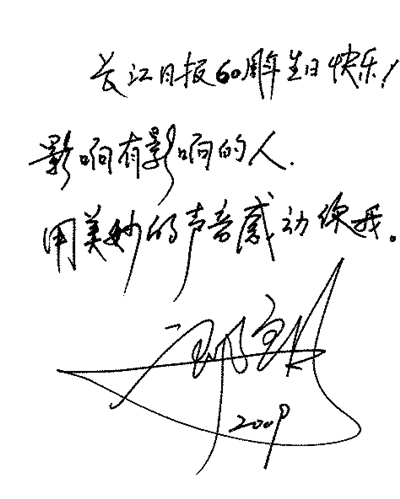 长江日报60周年生日快乐!
影响有影响的人.
用美妙的声音感动你我。
2009